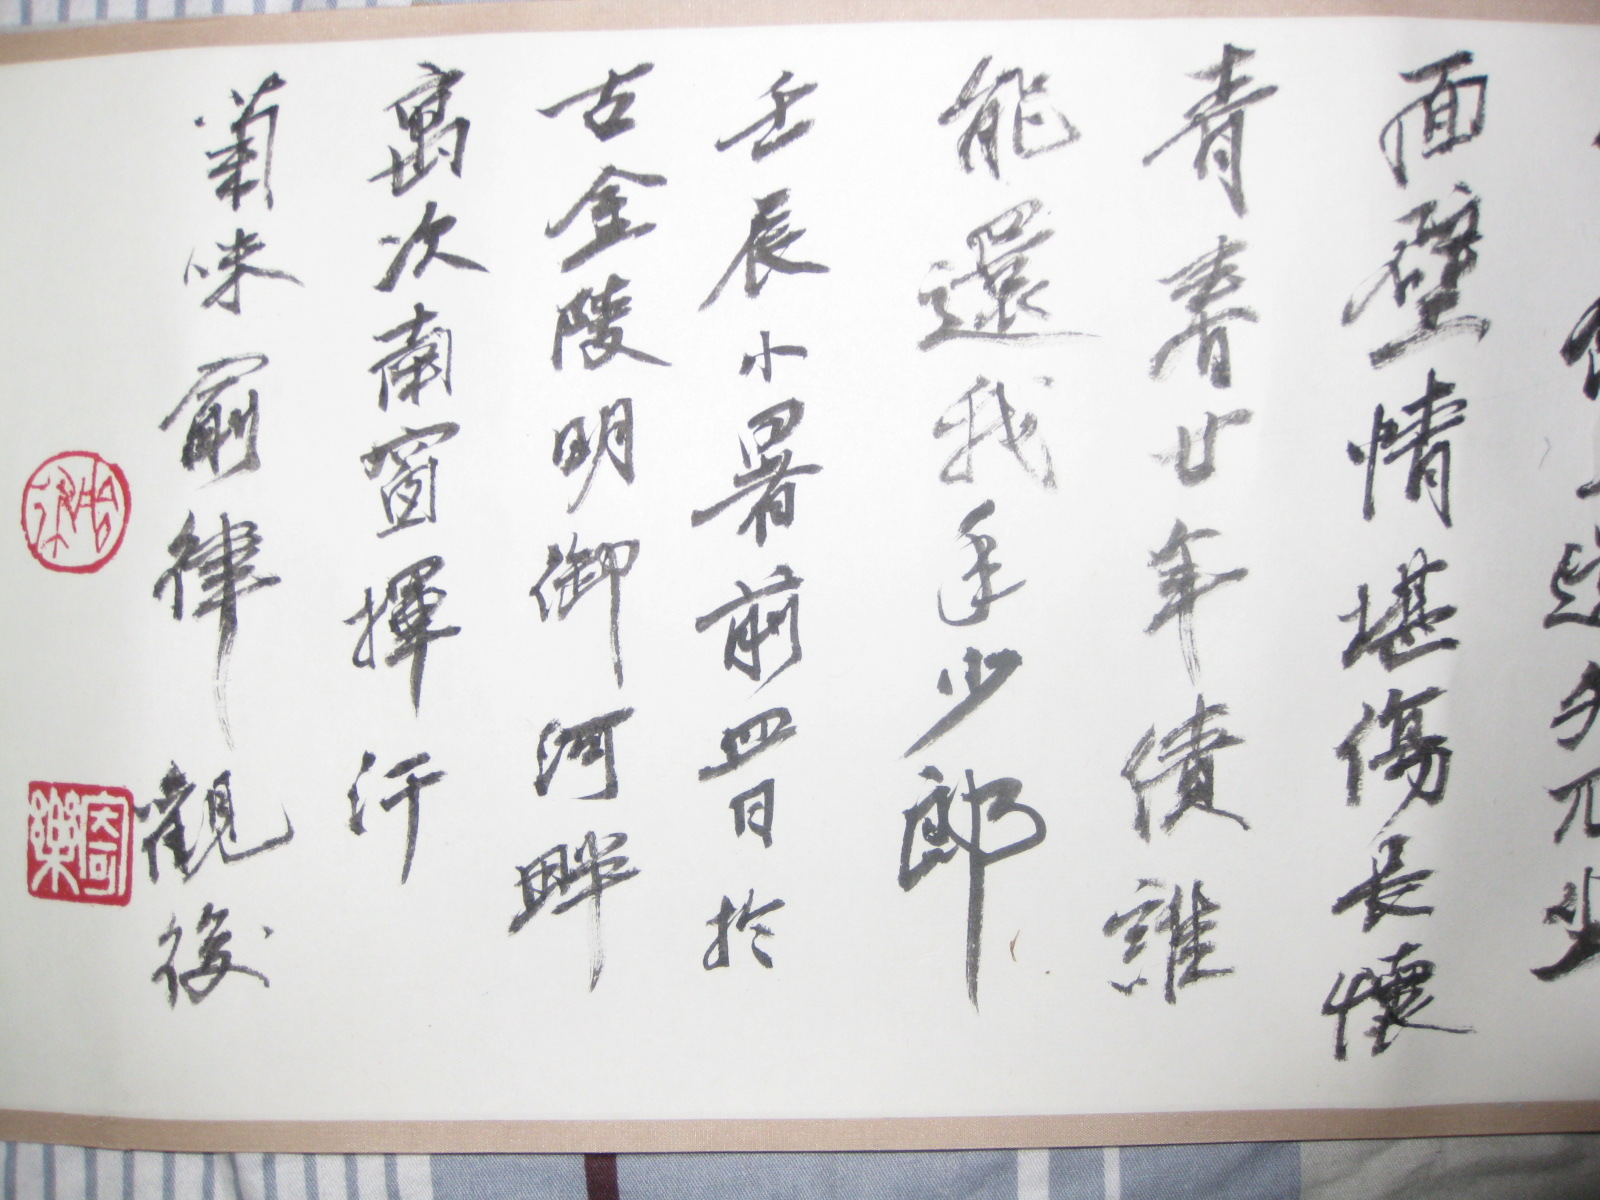 面壁情堪傷長懷
青青廿年債誰
能還我手少郎
壬辰小暑前四日於
古金陵明御河畔
寓次南窗揮汗
菊咪俞律觀後